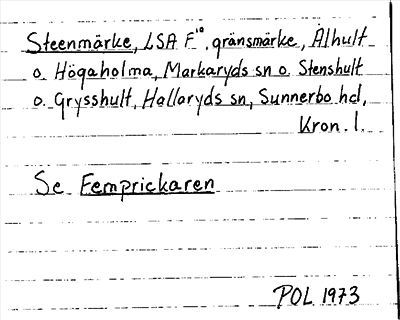 Steenmärke, LSA F¹⁰, gränsmärke, Ålhult
o. Högaholma, Markaryds sn o. Stenshult
o. Grysshult, Hallaryds sn, Sunnerbo hd,
Kron. l.
Se Femprickaren
POL 1973